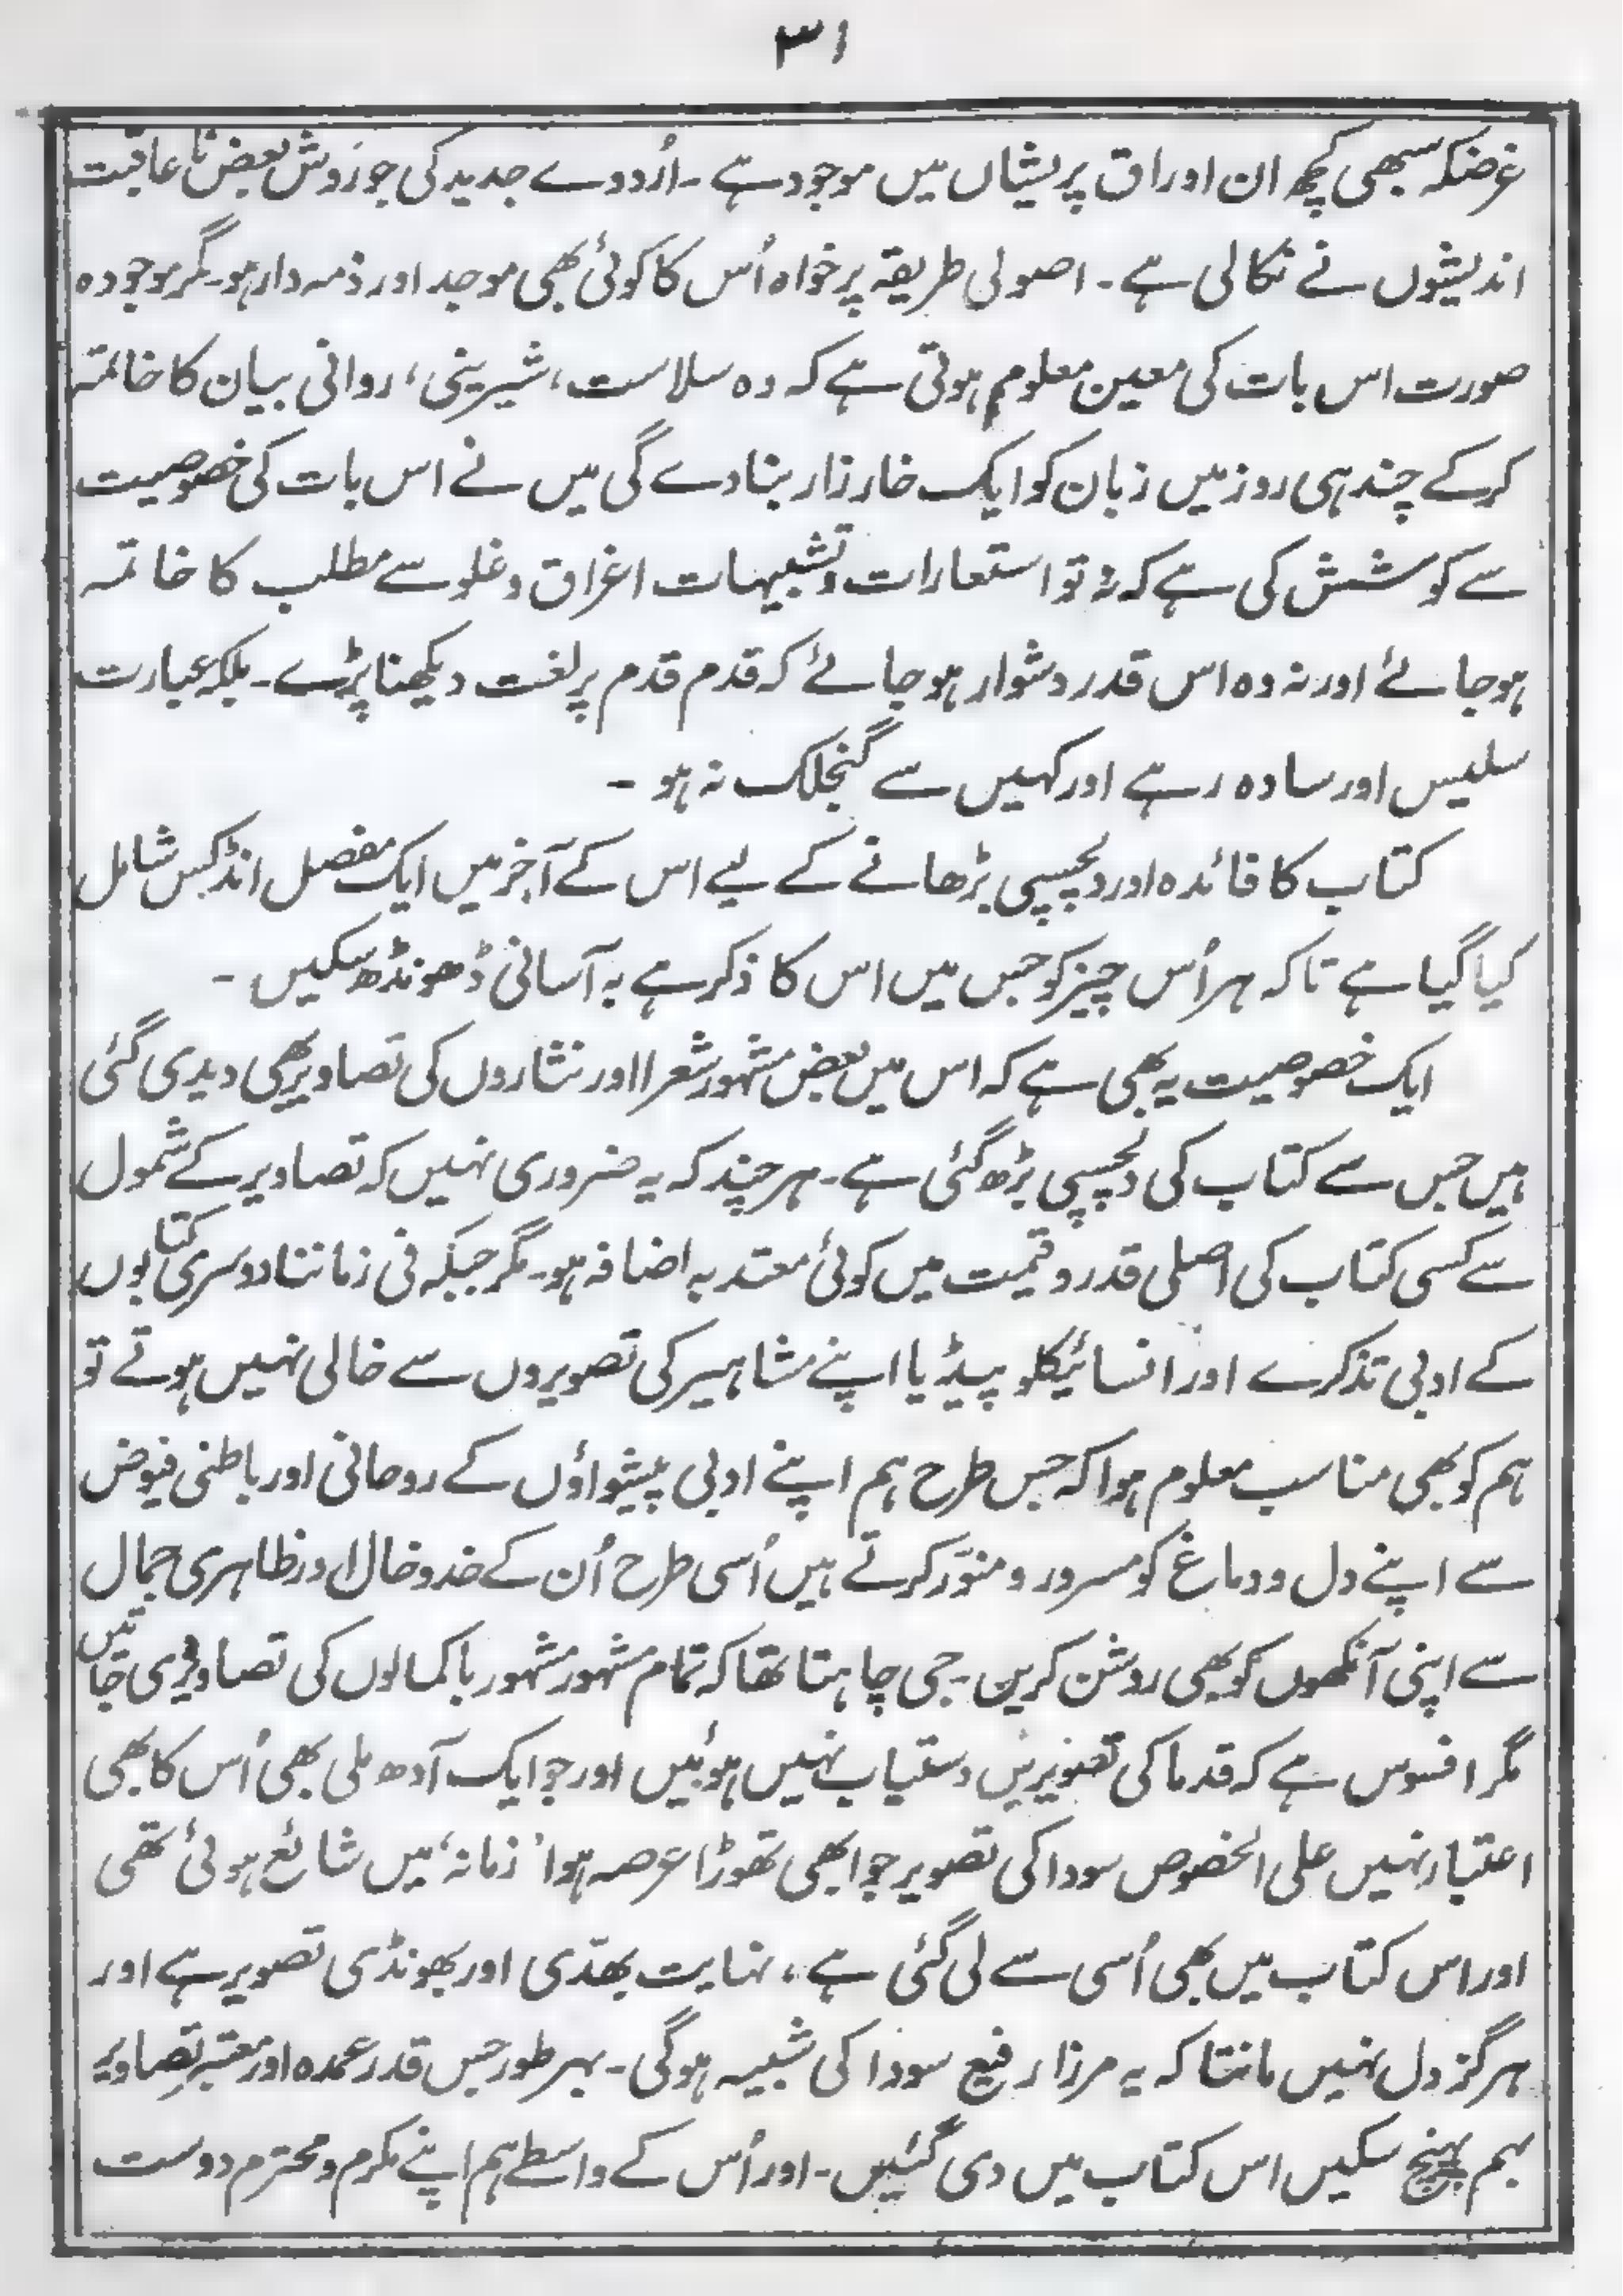 ۳۱
غرضکہ سبھی کچھ ان اوراق پریشاں میں موجود ہے ۔ اُردوے جدید کی جو رَوش بعض نا عاقبت
اندیشوں نے نکالی ہے ۔ اصولی طریقہ پر خواہ اُس کا کوئی بھی موجد اور ذمہ دار ہو۔ مگر موجودہ
صورت اس بات کی معین معلوم ہوتی ہے کہ وہ سلاست، شیرینی، روانی بیان کا خاتمہ
کرکے چند ہی روز میں زبان کو ایک خارزار بنادے گی میں نے اس بات کی خصوصیت
سے کوشش کی ہے کہ نہ تو استعارات و تشبیہات اغراق و غلو سے مطلب کا خاتمہ
ہوجائے اور نہ وہ اس قدر دشوار ہوجائے کہ قدم قدم پر لغت دیکھنا پڑے۔ بلکہ عبارت
سلیس اور سادہ رہے اور کہیں سے گنجلک نہ ہو ۔
کتاب کا فائدہ اور دلچسپی بڑھانے کے لیے اس کے آخر میں ایک مفصل انڈکس شامل
کیا گیا ہے تاکہ ہر اُس چیز کو جس میں اس کا ذکر ہے بہ آسانی ڈھونڈھ سکیں ۔
ایک خصوصیت یہ بھی ہے کہ اس میں بعض مشہور شعرا اور نثاروں کی تصاویر بھی دیدی گئی
ہیں جس سے کتاب کی دلچسپی بڑھ گئی ہے۔ ہر چند کہ یہ ضروری نہیں کہ تصاویر کے شمول
سے کسی کتاب کی اصلی قدر و قیمت میں کوئی معتدبہ اضافہ ہو۔ مگر جبکہ فی زماننا دوسری کتابوں
کے ادبی تذکرے اور انسائیکلو پیڈیا اپنے مشاہیر کی تصویروں سے خالی نہیں ہوتے تو
ہم کو بھی مناسب معلوم ہوا کہ جس طرح ہم اپنے ادبی پیشواؤں کے روحانی اور باطنی فیوض
سے اپنے دل و دماغ کو مسرور و منوّر کرتے ہیں اُسی طرح اُن کے خدوخال اور ظاہری جمال
سے اپنی آنکھوں کو بھی روشن کریں ۔ جی چاہتا تھا کہ تمام مشہور مشہور باکمالوں کی تصاویر دی جاتیں
مگر افسوس ہے کہ قدما کی تصویریں دستیاب نہیں ہوئیں اور جو ایک آدھ ملی بھی اُس کا بھی
اعتبار نہیں علی الخصوص سودا کی تصویر جو ابھی تھوڑا عرصہ ہوا ’زمانہ‘ میں شائع ہوئی تھی
اور اس کتاب میں بھی اُسی سے لی گئی ہے، نہایت بھدّی اور بھونڈی تصویر ہے اور
ہرگز دل نہیں مانتا کہ یہ مرزا رفیع سودا کی شبیہ ہوگی۔ بہرطور جس قدر عمدہ اور معتبر تصاویر
بہم پہنچ سکیں اس کتاب میں دی گئیں۔ اور اُس کے واسطے ہم اپنے مکرم و محترم دوست